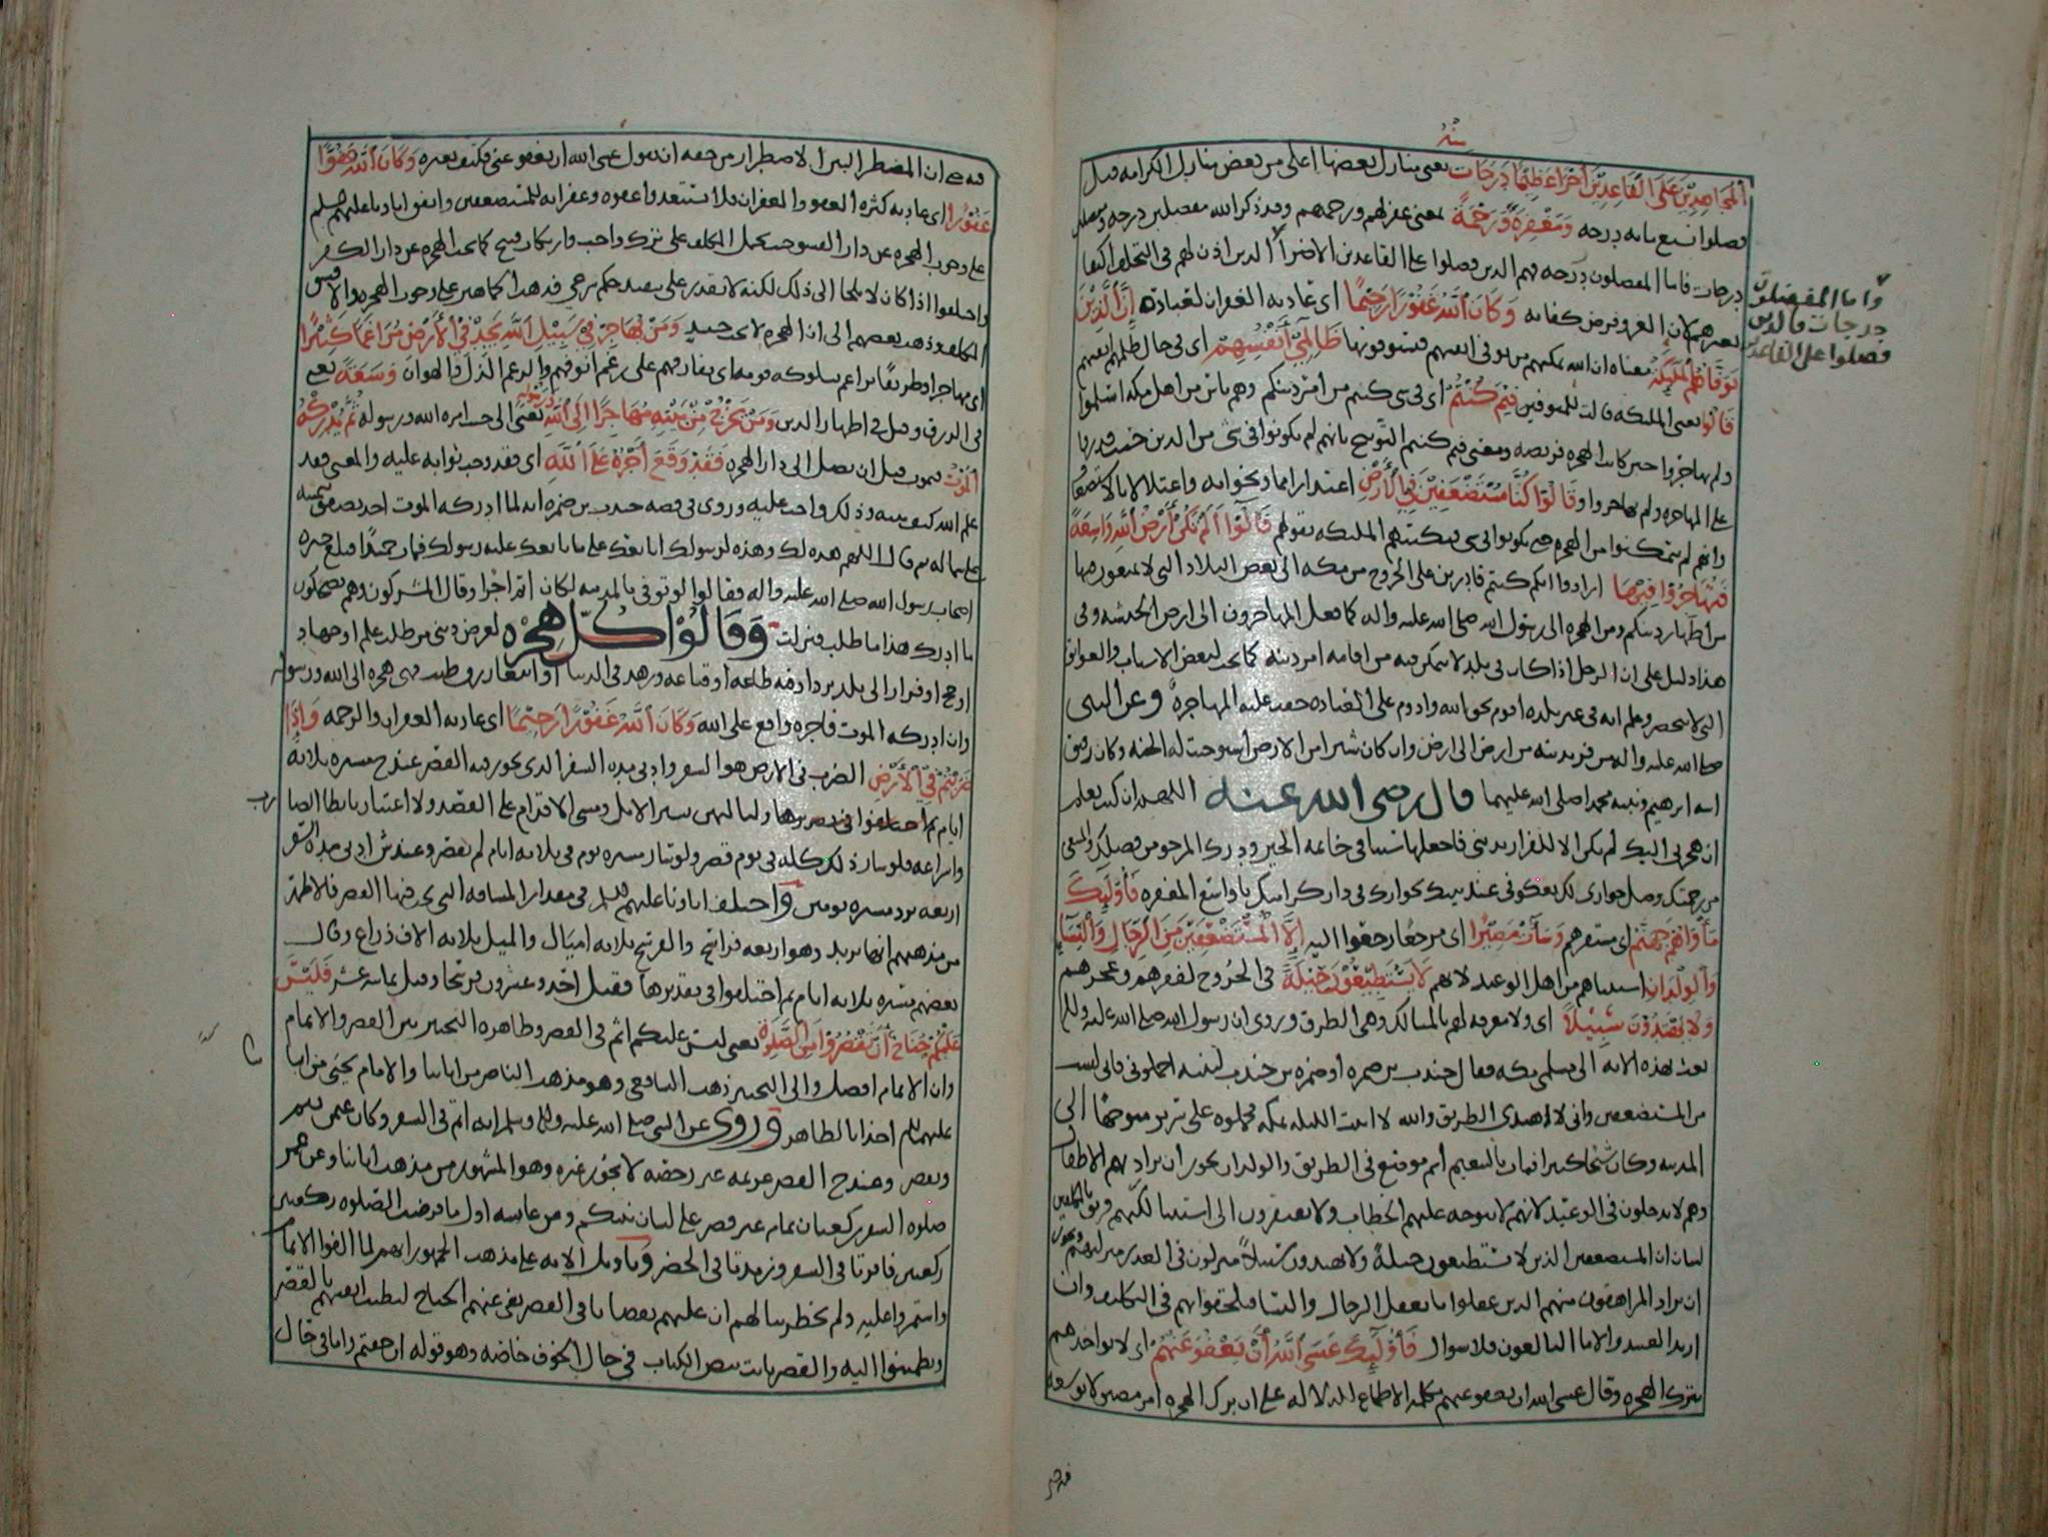 المجاهدين على القاعدين أجرا عظيما درجات يعني منازل بعضها أعلى من بعض منازل الكرامه قيل
فضلوا بسبع مايه درجه ومغفرة ورحمة بمعنى غفر لهم ورحمهم وقد ذكر الله مفضلين درجه
درجات فاما المفضلون درجه فهم الذين فضلوا على القاعدين الاضراء الذين اذن لهم في التخلف اكتفا
بغيرهم لان الغزو فرض كفايه وكان الله غفورا رحيما اى عادته الغفران لعباده إن الذين
توفاهم الملئكة معناه ان الله يمكنهم من توفى انفسهم فيتوفونها ظالمي أنفسهم اى في حال ظلمهم انفسهم
قالوا يعنى الملئكه قالت للمتوفين فيم كنتم اى في شى كنتم من امر دينكم وهم ناس من اهل مكه اسلموا
ولم يهاجروا حين كانت الهجره فريضه ومعنى فيم كنتم التوبيخ بانهم لم يكونوا في شى من الدين حيث قدروا
على المهاجره ولم يهاجروا وقالوا كنا مستضعفين في الأرض اعتذارا مما وبخوا به واعتلالا بالاستضعاف
وانهم لم يتمكنوا من الهجره حتى يكونوا في شى فبكتتهم الملئكه بقولهم قالوا ألم تكن أرض الله واسعة
فتهاجروا فيها ارادوا انكم كنتم قادرين على الخروج من مكه الى بعض البلاد التى لا تمنعون فيها
من اظهار دينكم ومن الهجره الى رسول الله صلى الله عليه واله كما فعل المهاجرون الى ارض الحبشه وفي
هذا دليل على ان الرجل اذا كان في بلد لا يتمكن فيه من اقامه امر دينه كما يجب لبعض الاسباب والعوايق
التى لا تنحصر وعلم انه في غير بلده اقوم بحق الله وادوم على العباده حقت عليه المهاجرة وعن النبى
صلى الله عليه واله من فر بدينه من ارض الى ارض وان كان شبرا من الارض استوجبت له الجنه وكان رفيق
ابيه ابرهيم ونبيه محمد صلى الله عليهما قال رضي الله عنه اللهم ان كنت تعلم
ان هجرتي اليك لم تكن الا للفرار بديني فاجعلها سببا في خاتمه الخير ودرك المرجو من فضلك والمبتغى
من رحمتك وصل جوارى لك بعكوفى عند بيتك بجوارك في دار كرامتك يا واسع المغفره فأولئك
مأواهم جهنم اى مستقرهم وساءت مصيرا اى مرجعا رجعوا اليه إلا المستضعفين من الرجال والنساء
والولدان استثناهم من اهل الوعيد لانهم لا يستطيعون حيلة في الخروج لفقرهم وعجزهم
ولا يهتدون سبيلا اى ولا معرفه لهم بالمسالك وهى الطرق وروى ان رسول الله صلى الله عليه واله
بعث بهذه الايه الى مسلمى مكه فقال جندب بن ضمره او ضمره بن جندب لبنيه احملوني فاني لست
من المستضعفين وانى لاهتدى الطريق والله لا ابيت الليله بمكه فحملوه على سرير متوجها الى
المدينه وكان شيخا كبيرا فمات بالتنعيم اسم موضع في الطريق والولدان يجوز ان يراد بهم الاطفال
وهم لا يدخلون في الوعيد لانهم لا يتوجه عليهم الخطاب ولا يفتقرون الى استثنا لكنهم قرنوا
لبيان ان المستضعفين الذين لا يستطيعون حيلة ولا يهتدون سبيلا منزلون في العذر منزلتهم ويجوز
ان يراد المراهقون منهم الذين عقلوا ما يعقل الرجال والنسا فيلحقوا بهم في التكليف وان
اريد العبيد والاما البالغون فلا سوال فأولئك عسى الله أن يعفو عنهم اى لا يواخذهم
بترك الهجره وقال عسى الله ان يعفو عنهم بكلمه الاطماع للدلاله على ان ترك الهجره امر مضيق لا توسعه
وأما المفضلون
درجات فالذين
فضلوا على القاعد
فيه حتى ان المضطر البين الاضطرار من حقه ان يقول عسى الله ان يعفو عنى فكيف بغيره وكان الله عفوا
غفورا اى عادته كثره العفو والمغفران فلا تستبعدوا عفوه وغفرانه للمستضعفين واتفق اباونا عليهم السلم
على وجوب الهجره عن دار الفسق حيث يحمل المكلف على ترك واجب وارتكاب قبيح كما تجب الهجره عن دار الكفر
واختلفوا اذا كان لا يلجا الى ذلك لكنه لا يقدر على تنفيذ حكم شرعي
المكلف وذهب بعضهم الى ان الهجره لا تجب حينيذ ومن يهاجر في سبيل الله يجد في الأرض مراغما كثيرا
اى مهاجرا وطريقا يراغم بسلوكه قومه اى يفارقهم على رغم انوفهم والرغم الذل والهوان وسعة يعنى
في الرزق وقيل في اظهار الدين ومن يخرج من بيته مهاجرا إلى الله ورسوله يعنى الى حيث امره الله ورسوله ثم يدركه
الموت فيموت قبل ان يصل الى دار الهجره فقد وقع أجره على الله اى فقد وجب ثوابه عليه والمعنى فقد
علم الله كيف يثيبه وذلك واجب عليه وروى في قصه جندب بن ضمره انه لما ادركه الموت اخذ يصفق بيمينه
على شماله ثم قال اللهم هذه لك وهذه لرسولك ابايعك على ما بايعك عليه رسولك فمات حميدا فبلغ خبره
اصحاب رسول الله صلى الله عليه واله فقالوا لو توفى بالمدينه لكان اتم اجرا وقال المشركون وهم يضحكون
ما ادرك هذا ما طلب فنزلت وقالوا كل هجره لغرض ديني من طلب علم او جهاد
او حج او فرار الى بلد يزداد فيه طاعه او قناعه وزهد في الدنيا او ابتغا رزق طيب فهى هجره الى الله ورسوله
وان ادركه الموت فاجره واقع على الله وكان الله غفورا رحيما اى عادته الغفران والرحمه وإذا
ضربتم في الأرض الضرب في الارض هو السفر وادنى مده السفر الذى يجوز فيه القصر عند ح مسيره ثلاثه
ايام ثم اختلفوا وليالهن سير الابل ومشى الاقدام على القصد ولا اعتبار بابطا الضارب
واسراعه فلو سار ذلك كله في يوم قصر ولو سار مسيره يوم في ثلاثه ايام لم يقصر وعند ش ادنى مده السفر
اربعه برد مسيره يومين واختلف اباونا عليهم السلم في مقدار المسافه التى يجب فيها القصر فالاظهر
من مذهبهم انها بريد وهو اربعه فراسخ والفرسخ ثلاثه اميال والميل ثلاثه الاف ذراع وقال
بعضهم مسيره ثلاثه ايام ثم اختلفوا في تقديرها فقيل احد وعشرون فرسخا وقيل ثمانيه عشر فليس
عليكم جناح أن تقصروا من الصلوة يعنى ليس عليكم اثم في القصر وظاهره التخيير بين القصر والاتمام
وان الاتمام افضل والى التخيير ذهب الشافعى وهو مذهب الناصر من ابائنا والامام يحيى من ابائنا
عليهم السلم اخذا بالظاهر وروى عن النبى صلى الله عليه واله وسلم انه اتم في السفر وكان عثمن يتم
ويقصر وعند ح القصر عزيمه غير رخصه لا يجوز غيره وهو المشهور من مذهب ابائنا وعن عمر
صلوه السفر ركعتان تمام غير قصر على لسان نبيكم وعن عايشه اول ما فرضت الصلوه ركعتين
ركعتين فاقرت في السفر وزيدت في الحضر وتاويل الايه على مذهب الجمهور انهم لما الفوا الاتمام
واستمروا عليه ولم يخطر ببالهم ان عليهم نقصانا في القصر نفى عنهم الجناح لتطيب انفسهم بالقصر
ويطمئنوا اليه والقصر ثابت بنص الكتاب في حال الخوف خاصه وهو قوله ان خفتم واما في حال